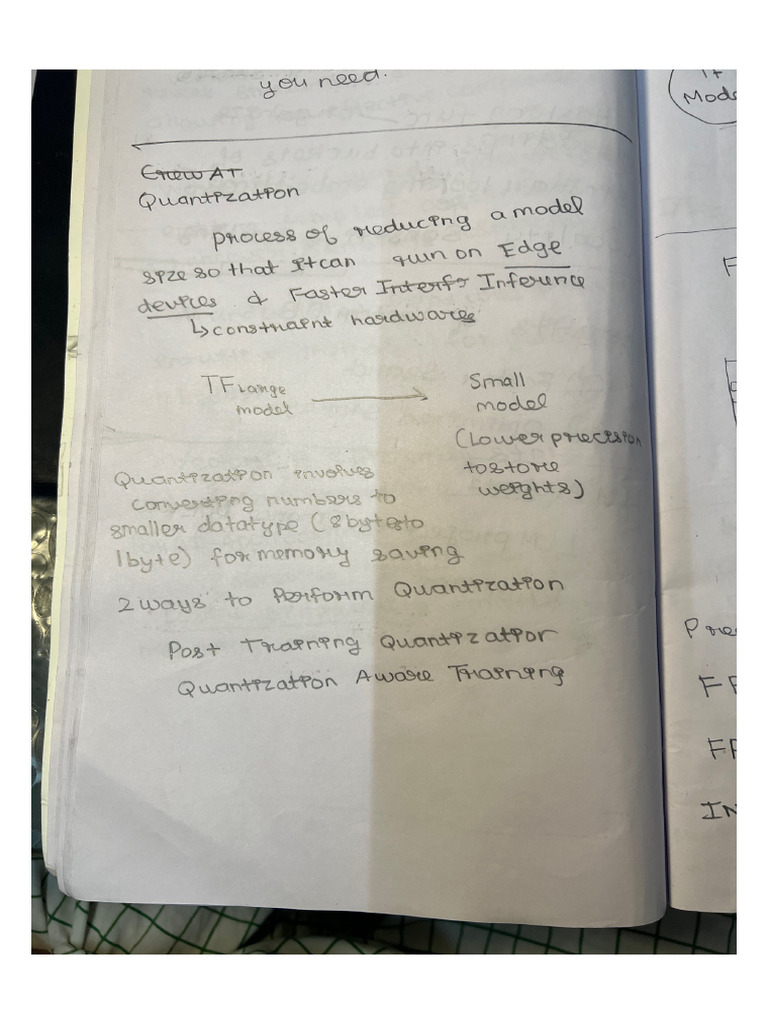 you need.
Quantization
process of reducing a model
size so that it can run on Edge
devices & Faster Inference
↳ constraint hardwares
TF Large model → Small model
(Lower precision to store weights)
Quantization involves
converting numbers to
smaller datatype (8 bytes to
1byte) for memory saving
2 ways to Perform Quantization
Post Training Quantization
Quantization Aware Training
It
Mode
F
Pre
FP
FP
IN